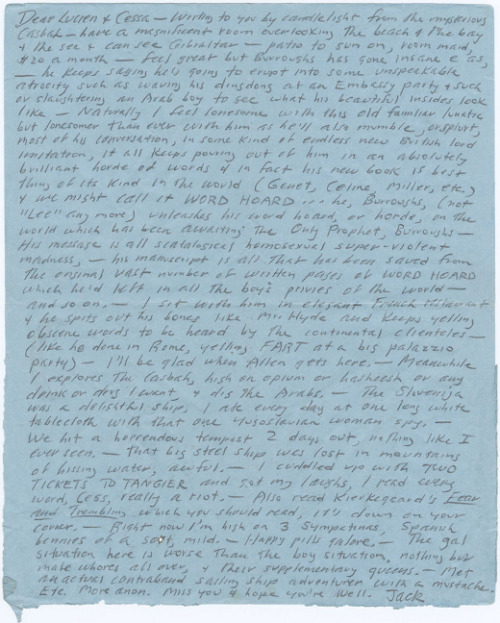 Dear Lucien & Cessa — Writing to you by candlelight from the mysterious
Casbah — have a magnificent room overlooking the beach & the bay
& the sea & can see Gibraltar — patio to sun on, room maid,
$20 a month — feel great but Burroughs has gone insane e as,
— he keeps saying he's going to erupt into some unspeakable
atrocity such as waving his dingdong at an Embassy party & such
or slaughtering an Arab boy to see what his beautiful insides look
like — Naturally I feel lonesome with this old familiar lunatic
but lonesomer than ever with him as he'll also mumble, or splurt,
most of his conversation, in some kind of endless new British lord
imitation, it all keeps pouring out of him in an absolutely
brilliant horde of words & in fact his new book is best
thing of its kind in the world (Genet, Celine, Miller, etc.)
& we might call it WORD HOARD... he, Burroughs, (not
"Lee" any more) unleashes his word hoard, or horde, on the
world which has been awaiting the Only Prophet, Burroughs —
His message is all scatalogical homosexual super-violent
madness, — his manuscript is all that has been saved from
the original vast number of written pages of WORD HOARD
which he'd left in all the boy's privies of the world —
and so on. — I sit with him in elegant French restaurant
& he spits out his bones like Mr. Hyde and keeps yelling
obscene words to be heard by the continental clienteles —
(like he done in Rome, yelling FART at a big palazzio
party) — I'll be glad when Allen gets here. — Meanwhile
I explores the Casbah, high on opium or hasheesh or any
drink or drug I want, & dig the Arabs. — The Slovenija
was a delightful ship, I ate every day at one long white
tablecloth with that one Yugoslavian woman spy. —
We hit a horrendous tempest 2 days out, nothing like I
ever seen. — That big steel ship was lost in mountains
of hissing water, awful. — I cuddled up with TWO
TICKETS TO TANGIER and got my laughs, I read every
word, Cess, really a riot. — Also read Kierkegaard's Fear
and Trembling which you should read, it's down on your
corner. — Right now I'm high on 3 Sympatinas, Spanish
bennies of a sort, mild. — Happy pills galore. — The gal
situation here is worse than the boy situation, nothing but
male whores all over, & their supplementary queens. — Met
an actual contraband sailing ship adventurer with a mustache.
Etc. More anon. Miss you & hope you're well. Jack